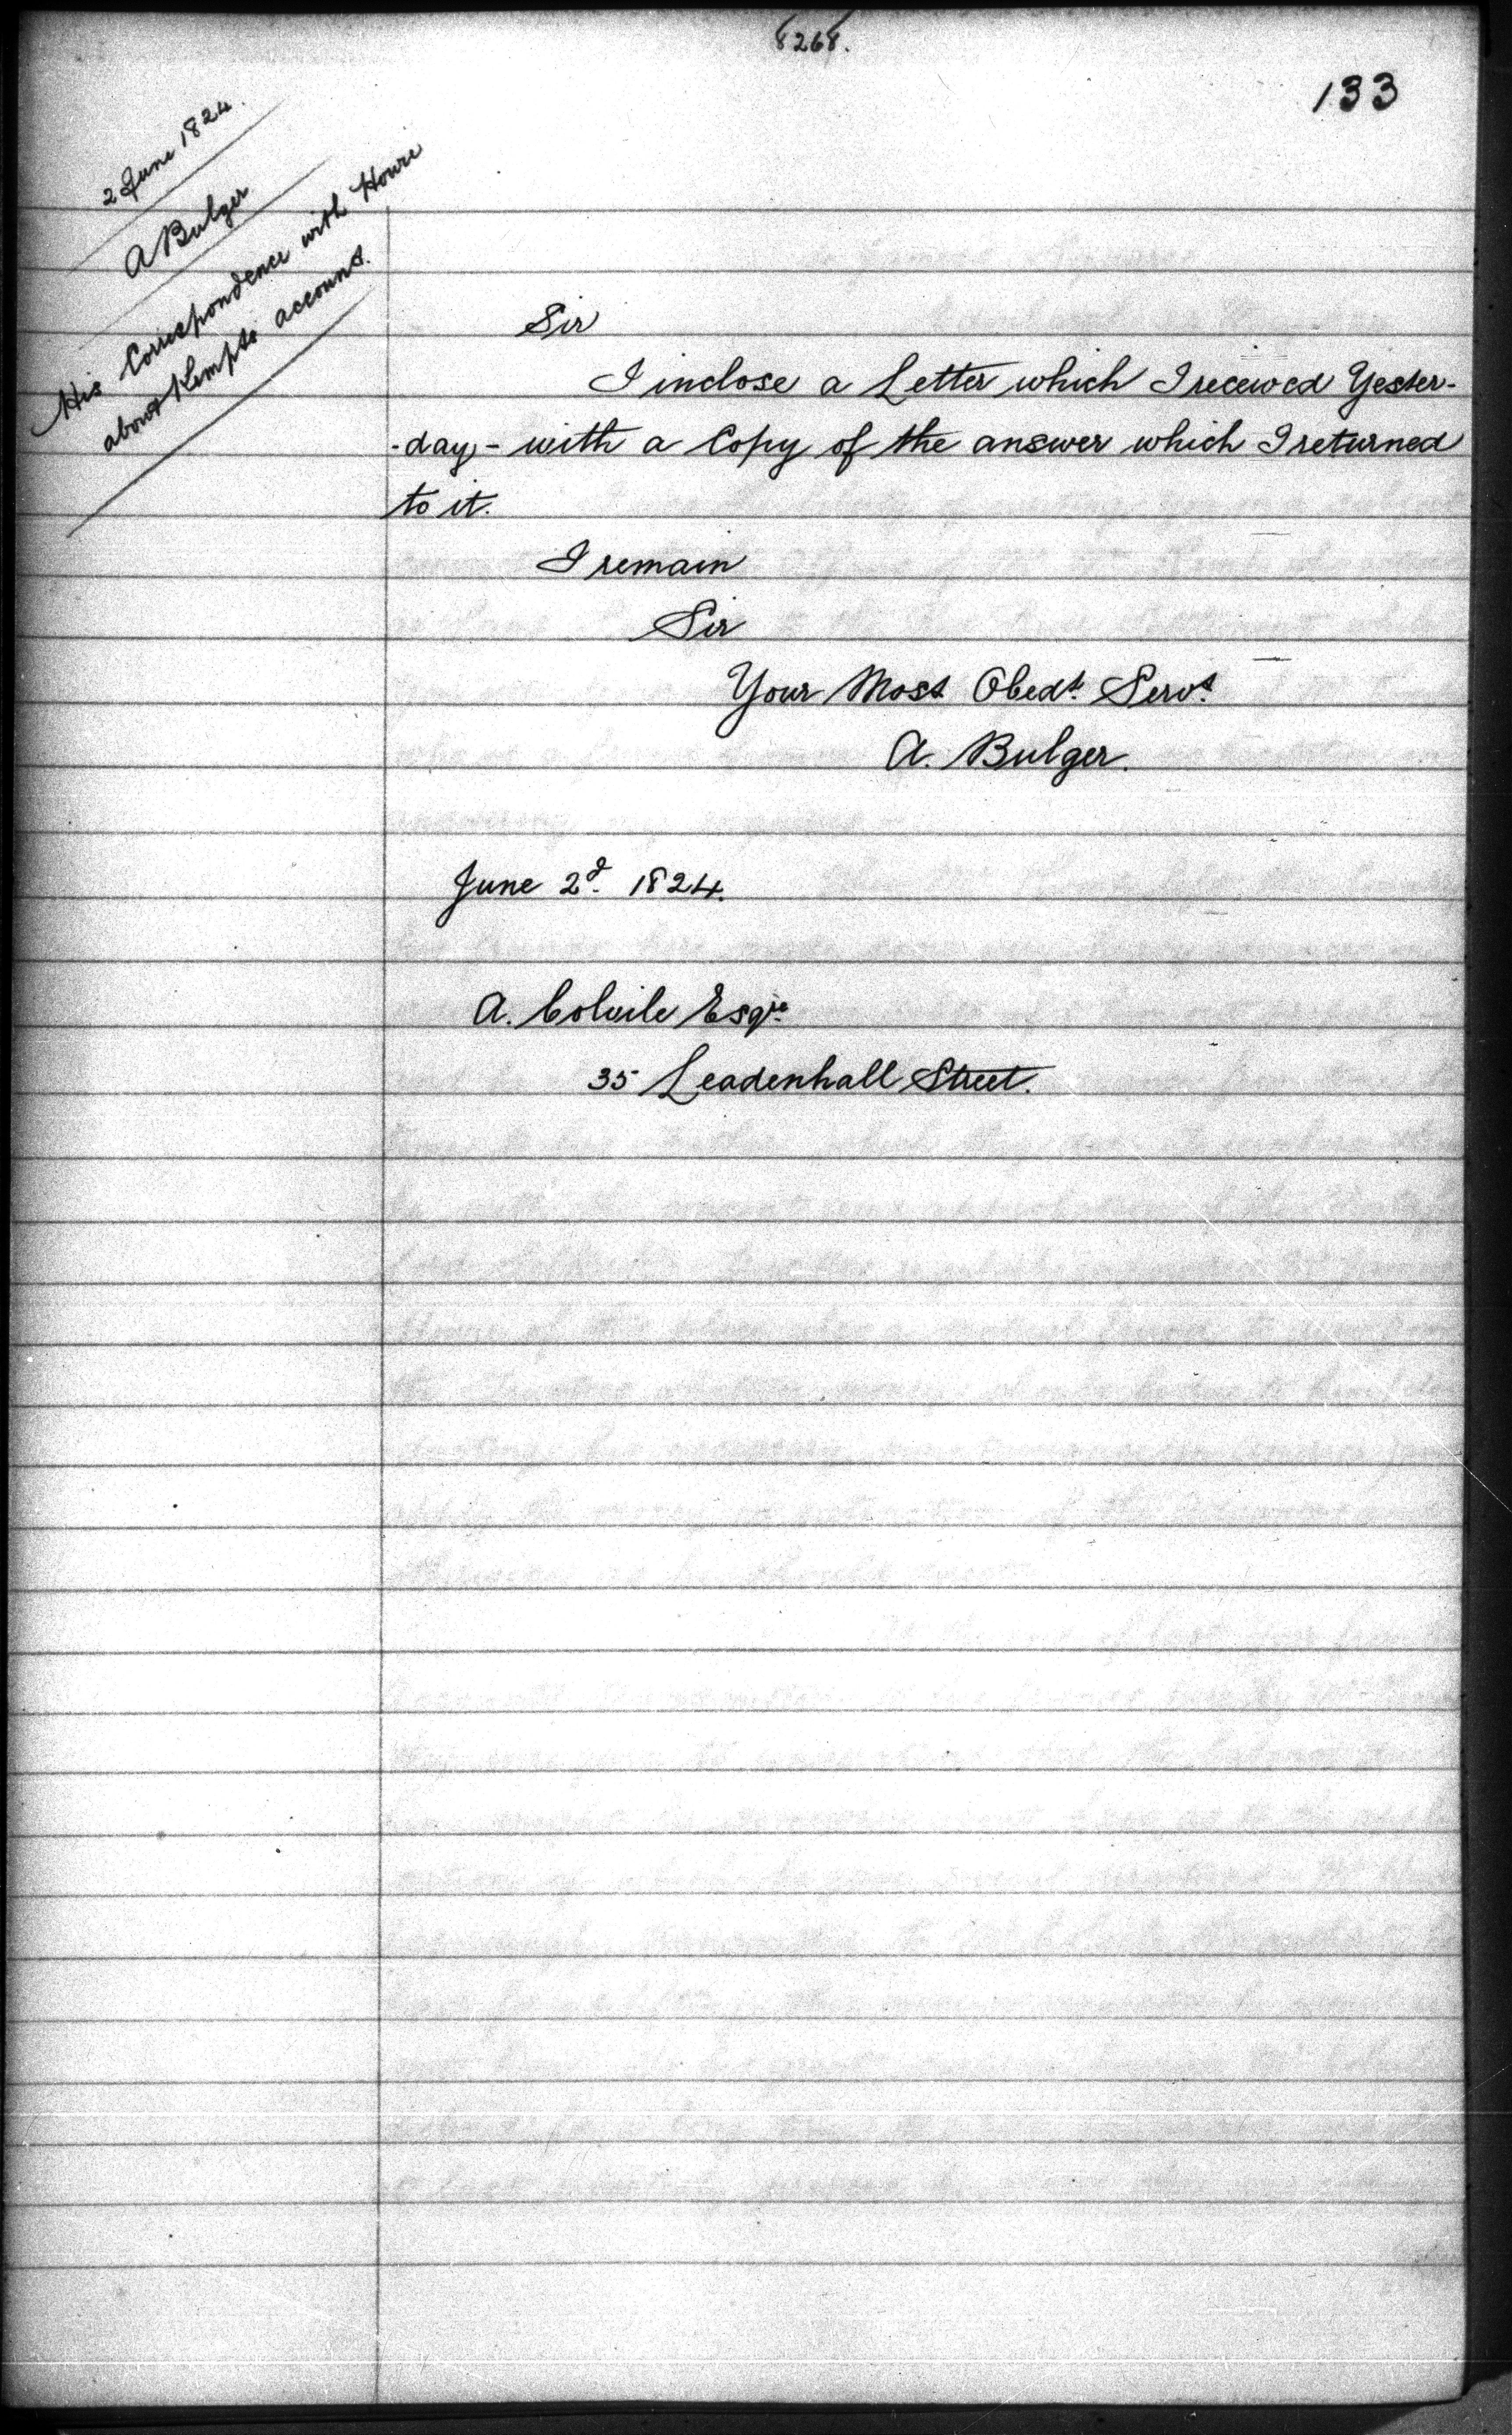 8268.
133
2 June 1824.
A Bulger
His Correspondence with Howie
about Kempts account.
Sir
I inclose a Letter which I received Yester-
-day - with a Copy of the answer which I returned
to it.
I remain
Sir
Your Most Obedt. Servt.
A. Bulger.
June 2d. 1824.
A. Colvile Esqre.
35 Leadenhall Street.